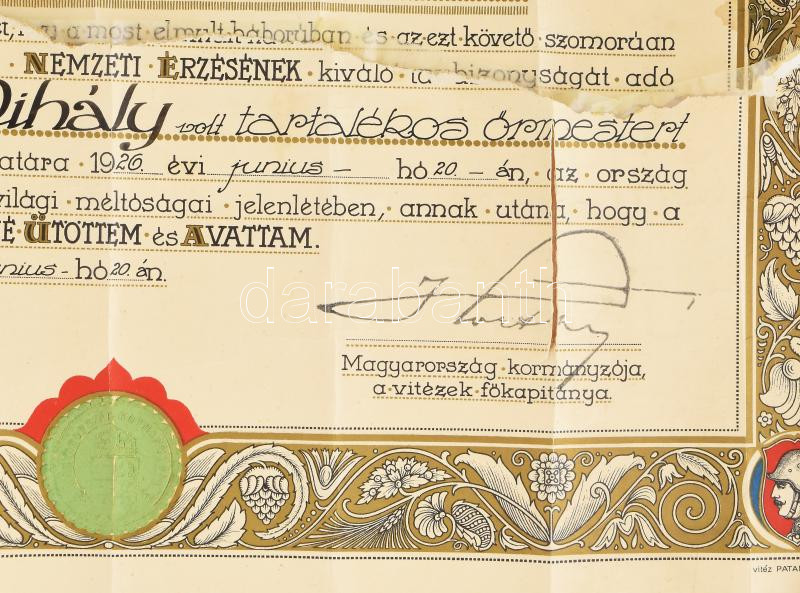 a most elmult háborúban és az ezt követő szomorúan
NEMZETI ÉRZÉSÉNEK kiváló bizonyságát adó
Mihály volt tartalékos őrmestert
atára 1926. évi junius – hó 20 – án, az ország
világi méltóságai jelenlétében, annak utána, hogy a
É ÜTÖTTEM és AVATTAM.
nius - hó 20. án.
darabanth
Horthy
Magyarország kormányzója,
a vitézek főkapitánya.
vitéz PATA